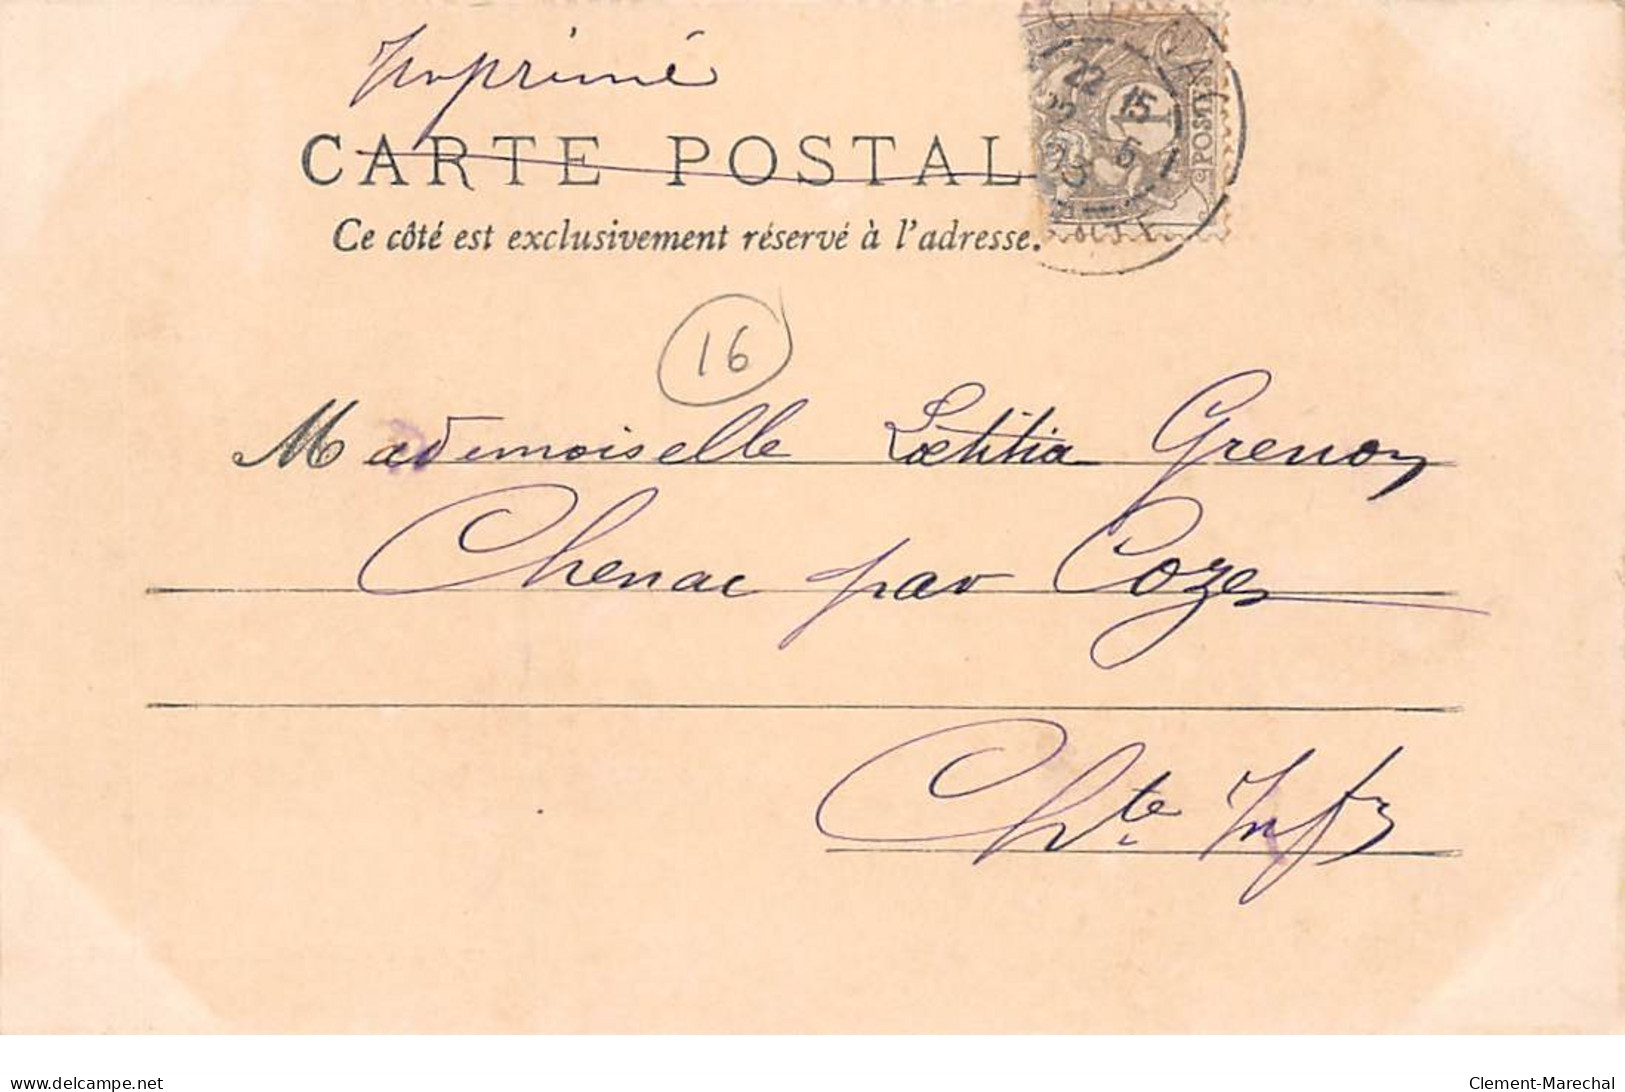 Imprimé
CARTE POSTALE
Ce côté est exclusivement réservé à l'adresse.
POSTES
22 15
5
03
16
Mademoiselle Lætitia Grenon
Chenac par Cozes
Chte Infre
delcampe.net
Clement-Marechal